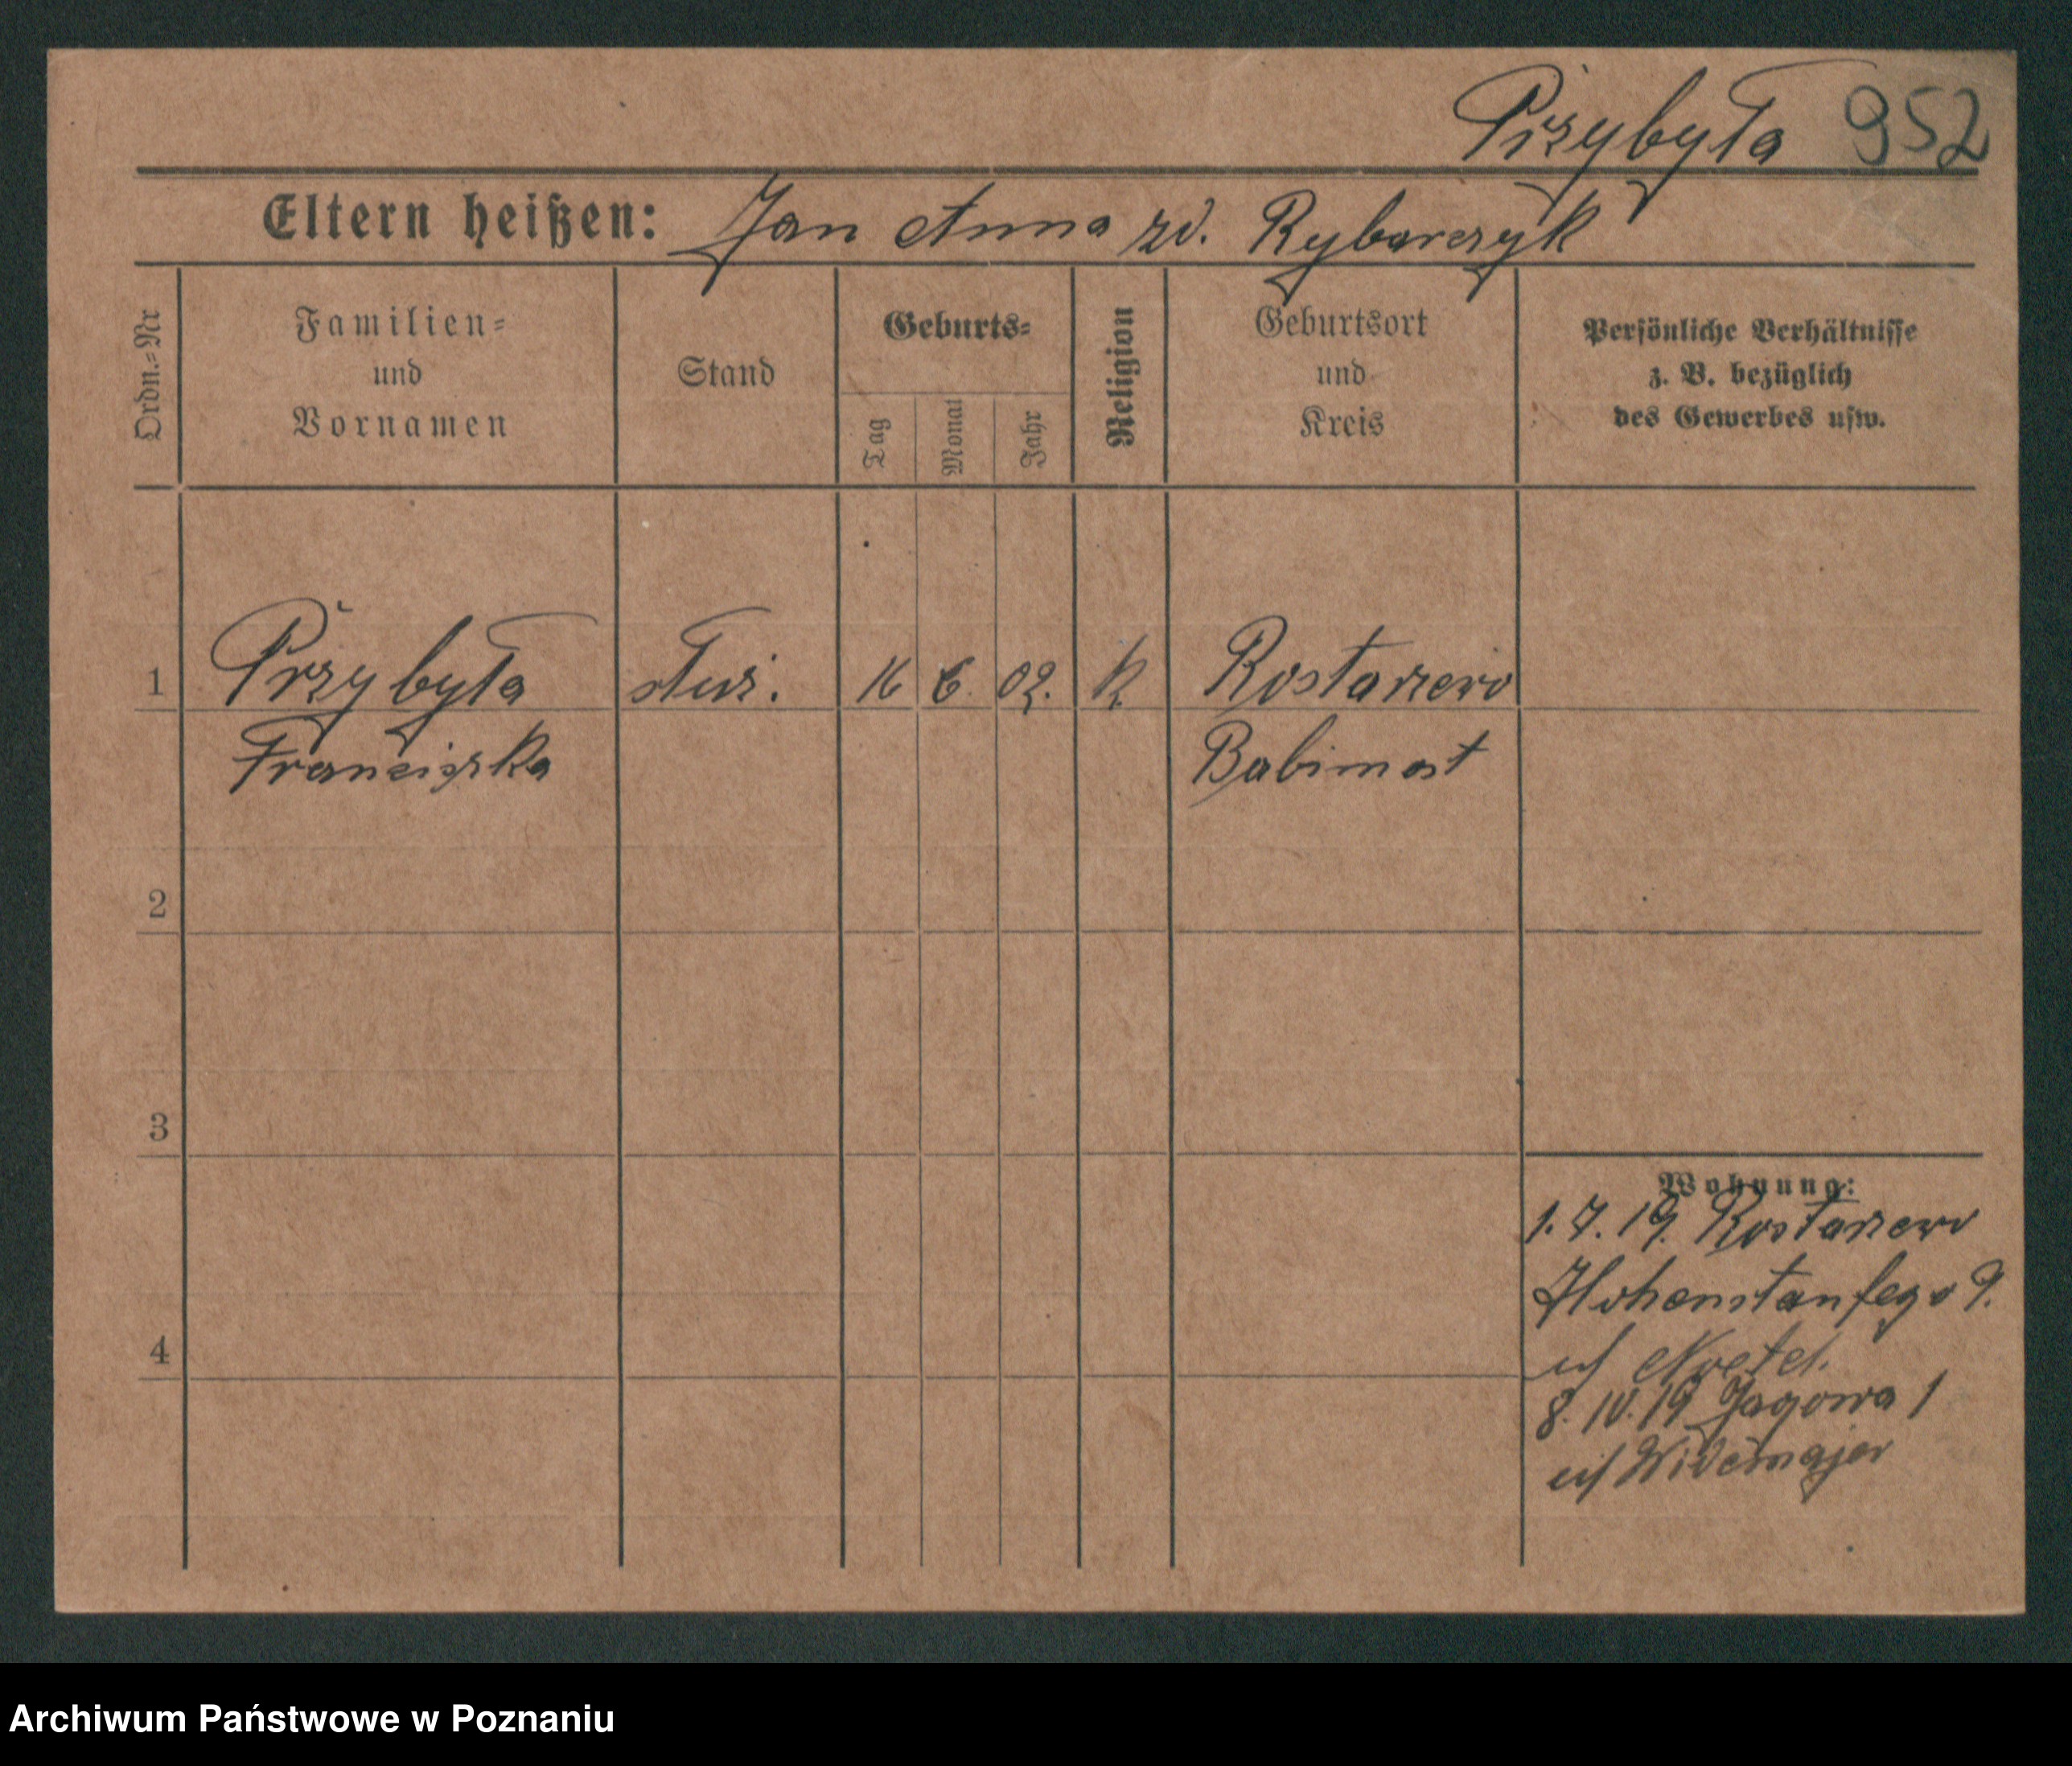 Przybyła 952
Eltern heißen: Jan Anna zd. Rybarczyk
Ordn.-Nr
Familien- und Vornamen
Stand
Geburts-
Tag
Monat
Jahr
Religion
Geburtsort und Kreis
Persönliche Verhältnisse z. B. bezüglich des Gewerbes usw.
1 Przybyła służ. 16 6. 02. K. Rostarzewo
Franciszka Babimost
2
3
Wohnung:
1. 7. 19. Rostarzewo
9.
4
8. 10. 19 1
Archiwum Państwowe w Poznaniu